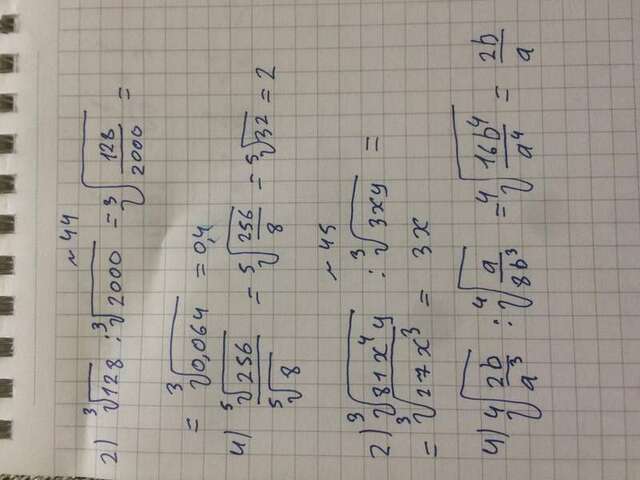 ~ 44
2) ∛128 : ∛2000 = ∛(128/2000) =
= ∛0,064 = 0,4
4) ⁵√256/⁵√8 = ⁵√(256/8) = ⁵√32 = 2
~ 45
2) ∛(81x⁴y) : ∛(3xy) =
= ∛(27x³) = 3x
4) ⁴√(2b/a³) : ⁴√(a/8b³) = ⁴√(16b⁴/a⁴) = 2b/a